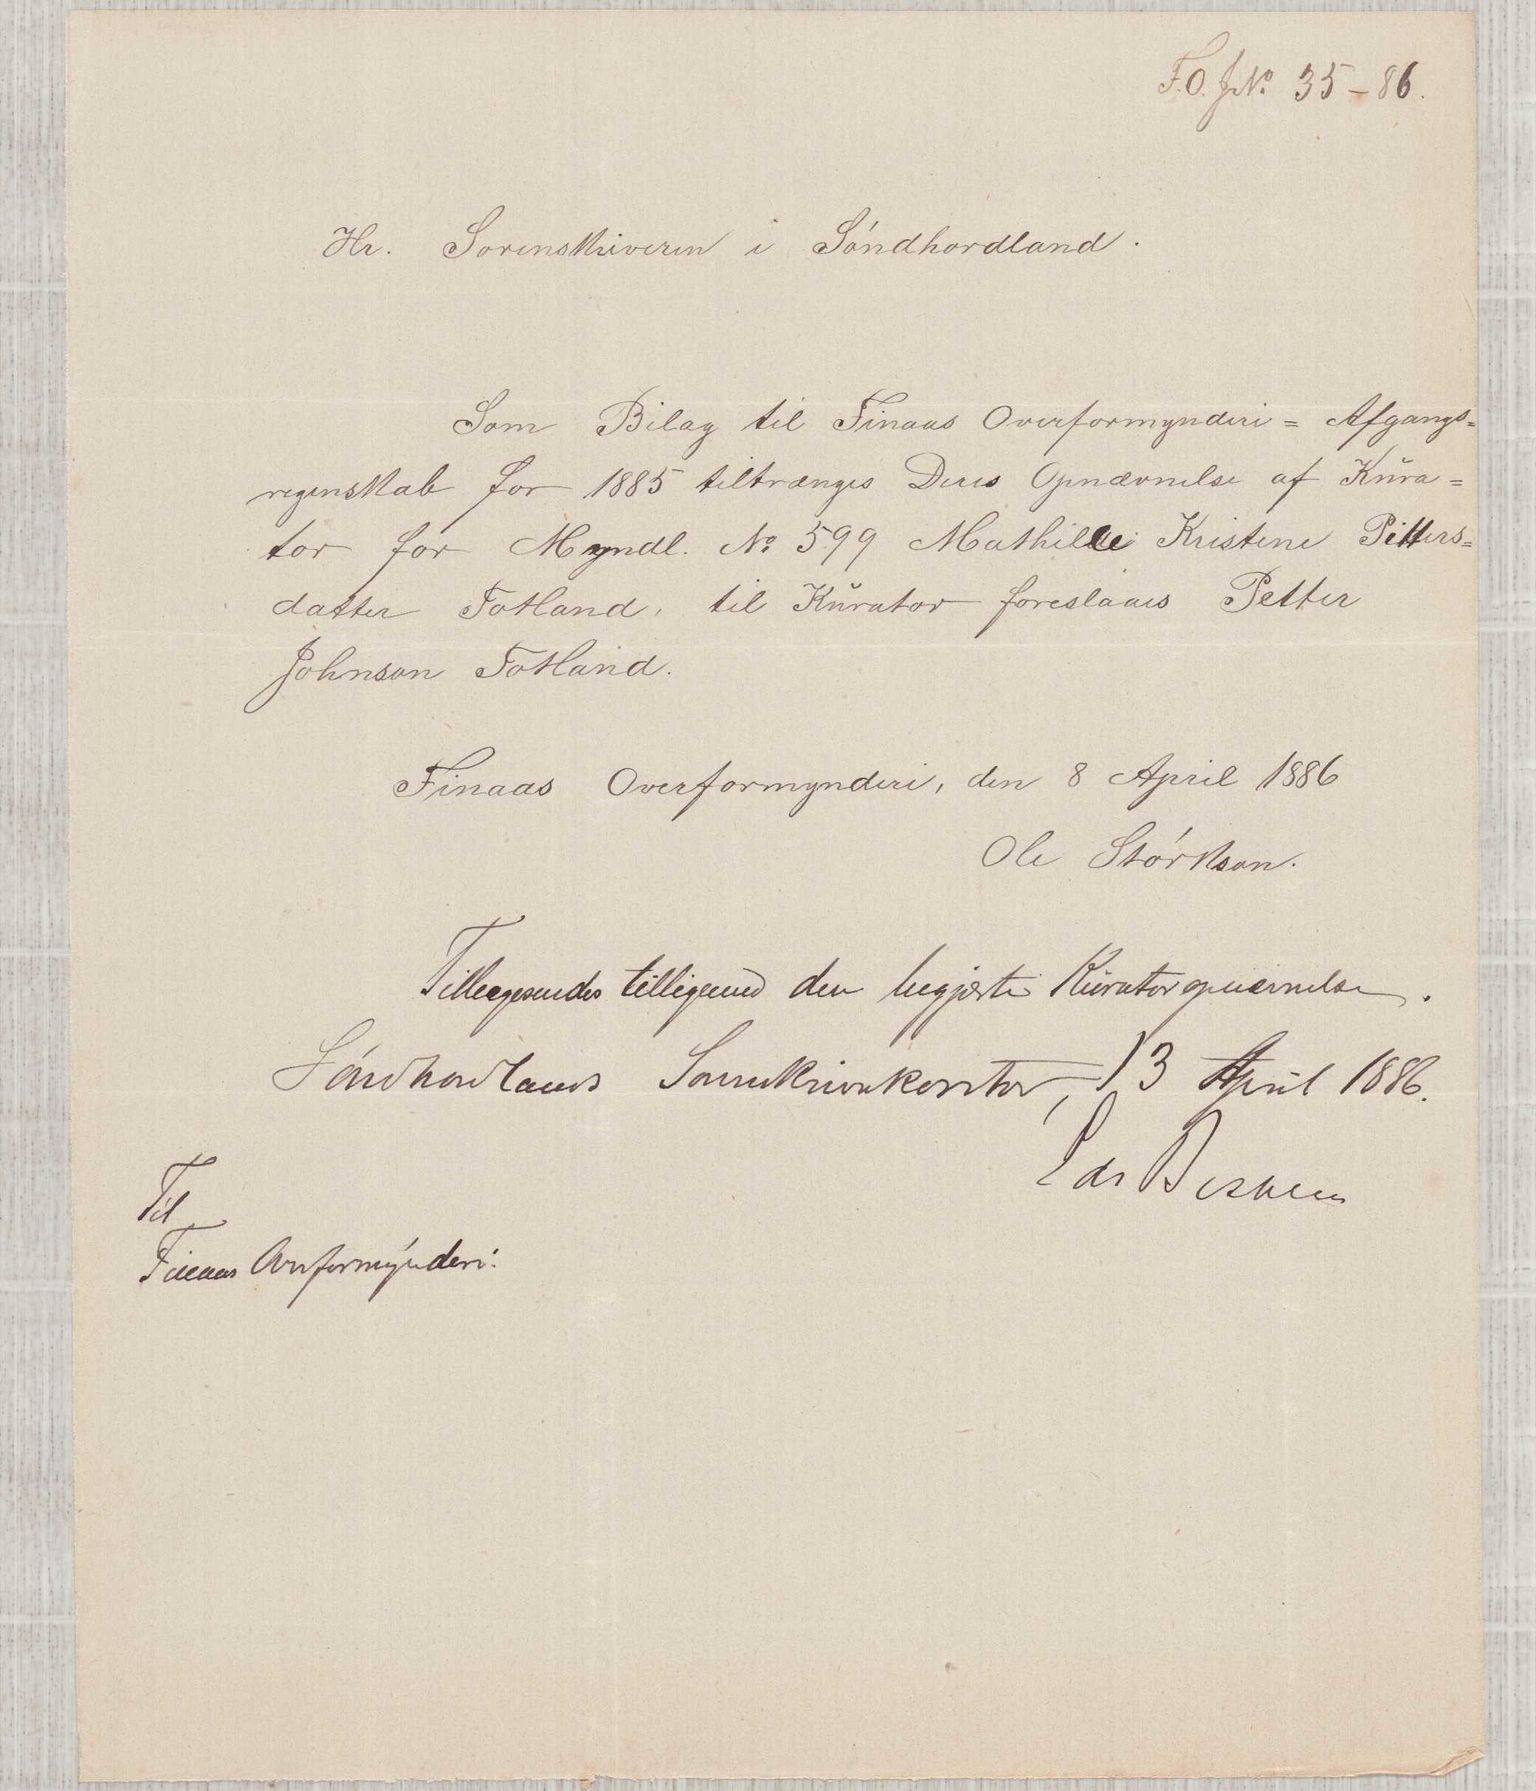 F.O.J.No. 35-86.
Hr. Sorenskriveren i Söndhordland.
Som Bilag til Finaas Overformynderi = Afgangs=
regenskab for 1885 tiltrænges Deres Opnævnelse af Kŭra=
tor for Myndl. No. 599 Mathilde Kristine Pitters=
datter Totland, til Kŭrator foreslaaes Petter
Johnson Totland.
Finaas Overformynderi, den 8 April 1886
Ole Störkson.
Tilbagesendes tilligemed den begjærte Kŭratoropnævnelse.
Söndhordlands Sorenskriverkontor, 13 April 1886.
Til
Finaas Overformynderi.